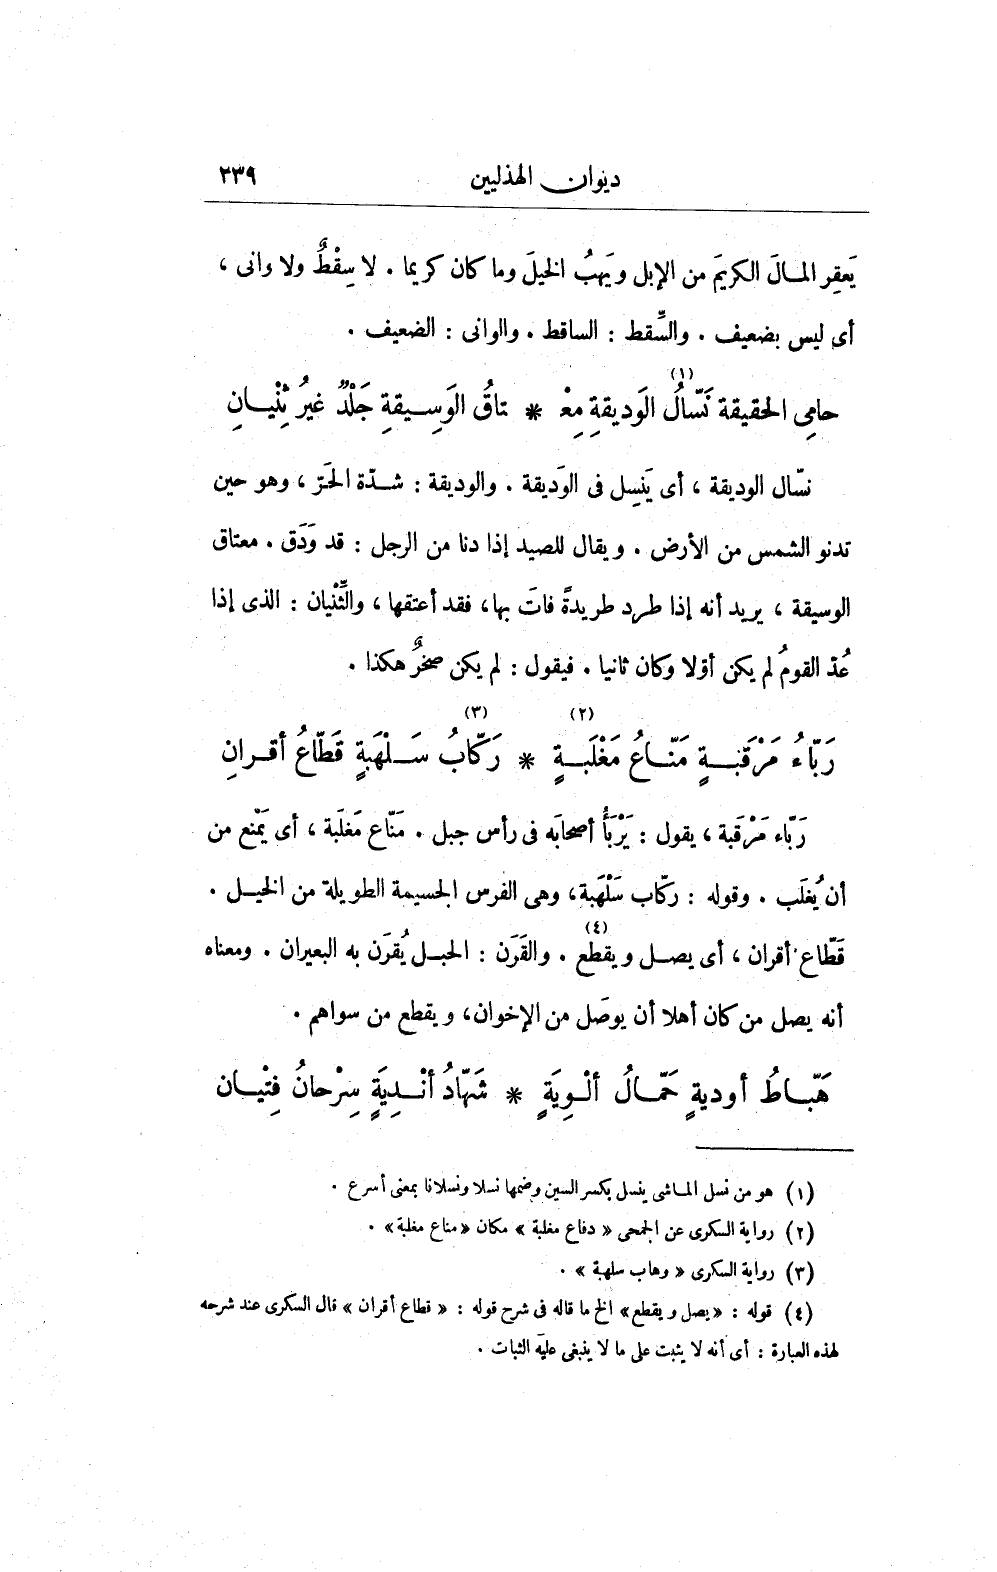 ديوان الهذليين ٢٣٩
يَعقِر المـالَ الكريمَ من الإبل ويَهبُ الخيلَ وما كان كريما . لا سِقْطٌ ولا وانى ،
أى ليس بضعيف . والسِّقط : الساقط . والوانى : الضعيف .
حامِى الحقيقة نَسّالُ (١) الوَديقةِ مِعْ * تاقُ الوَسِـيقةِ جَلْدٌ غيرُ ثِنْيـانِ
نسّال الوديقة ، أى يَنسِل فى الوَديقة . والوديقة : شـدّة الحَرّ ، وهو حين
تدنو الشمس من الأرض . ويقال للصيد إذا دنا من الرجل : قد وَدَق . معتاق
الوسيقة ، يريد أنه إذا طرد طريدةً فاتَ بها، فقد أعتقها ، والثِّنْيان : الذى إذا
عُدّ القومُ لم يكن أوّلا وكان ثانيا . فيقول : لم يكن صخرٌ هكذا .
رَبّاءُ مَرْقَبـةٍ مَنّـاعُ مَغْلَبـةٍ (٢) * رَكّابُ (٣) سَـلْهَبةٍ قَطّاعُ أقـرانِ
رَبّاء مَرْقَبة ، يقول : يَرْبَأُ أصحابَه فى رأس جبل . مَنّاع مَغلَبة ، أى يَمْنع من
أن يُغلَب . وقوله : ركّاب سَلْهَبة، وهى الفرس الجسيمة الطويلة من الخيـل .
قَطّاع أقران ، أى يصـل ويقطع (٤) . والقَرَن : الحبـل يُقرَن به البعيران . ومعناه
أنه يصل من كان أهلا أن يوصَل من الإخوان، ويقطع من سواهم .
هَبّـاطُ أودية حَمّـالُ ألْـوِيَةٍ * شَهّادُ أنْـدِيَةٍ سِرْحانُ فِتْيـان
(١) هو من نسل المـاشى ينسل بكسر السين وضمها نسلا ونسلانا بمعنى أسرع .
(٢) رواية السكرى عن الجمحى « دفاع مغلبة » مكان « مناع مغلبة» .
(٣) رواية السكرى « وهاب سلهبة » .
(٤) قوله : «يصل ويقطع» الخ ما قاله فى شرح قوله : « قطاع أقران » قال السكرى عند شرحه
لهذه العبارة : أى أنه لا يثبت على ما لا ينبغى عليه الثبات .